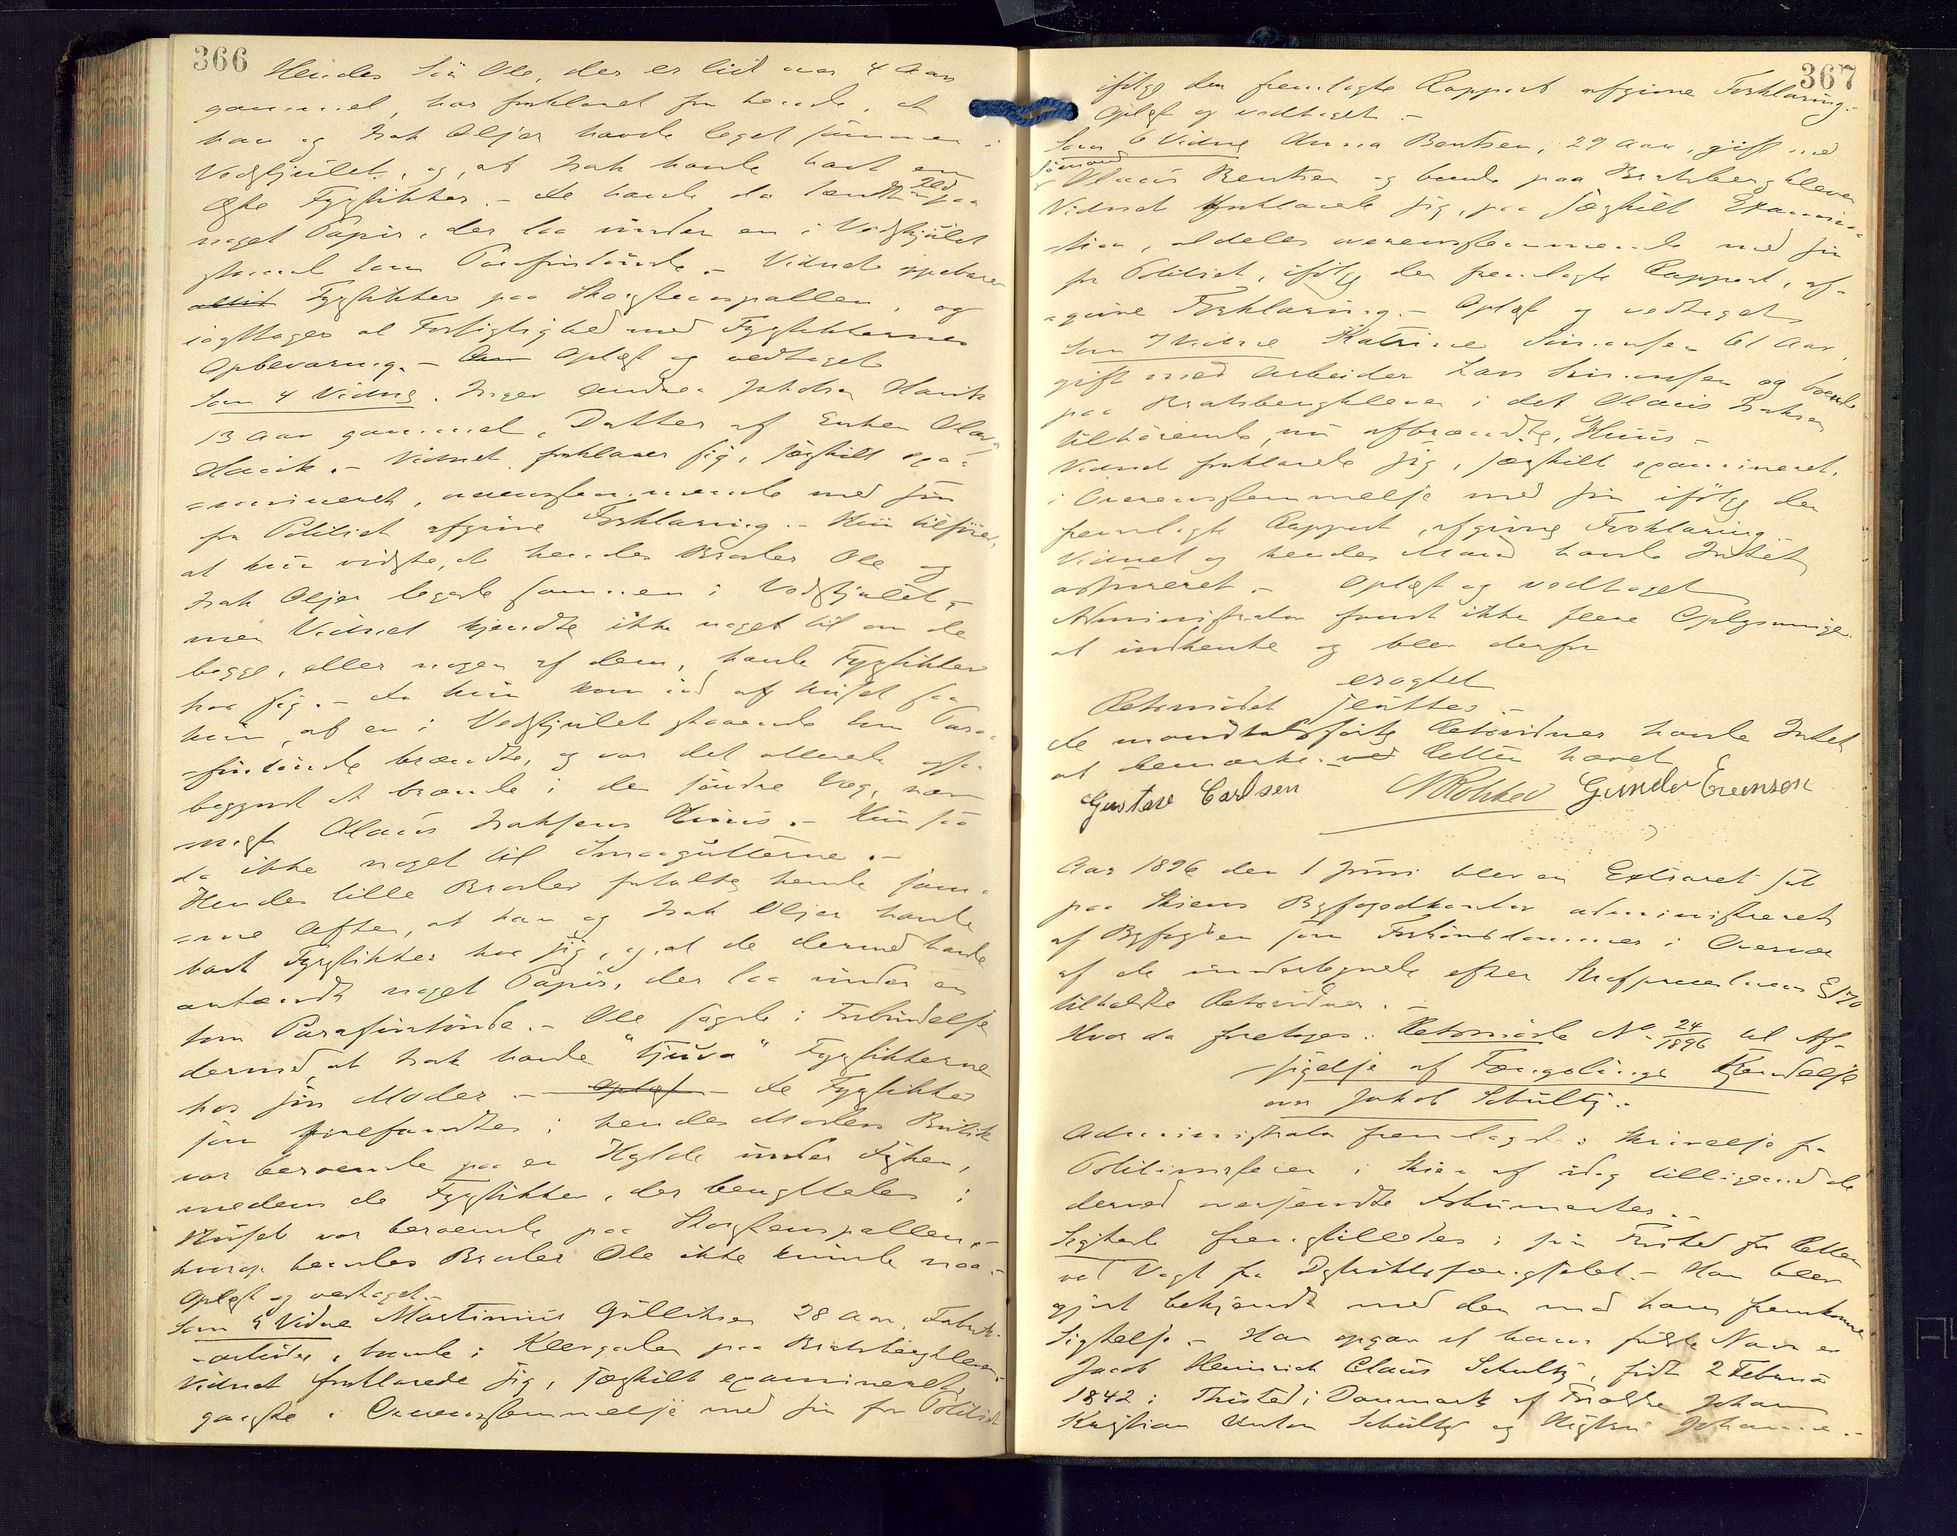 366
Hendes Sön Ole, der er lidt over 4 Aar
gammel, har forklaret for hende, at
han og Isak Oljer havde leget sammen i
Vedskjulet, og, at Isak havde havt en
Æske Fyrstikker. – De havde da tændt Ild paa
noget Papir, der laa under en i Vedskjulet
staaende tom Parafintönde. – Vidnet opbevarer
altid Fyrstikker paa Skorstenspallen, og
iagttager al Forsigtighed med Fyrstikkernes
Opbevaring. – Oplæst og vedtaget
Som 4 Vidne. Inger Andrea Jakobsen Havik
13 Aar gammel, Datter af Enken Olava
Havik. – Vidnet forklarer sig, særskilt exa-
mineret, overensstemmende med sin
for Politiet afgivne Forklaring. – Hun tilföier,
at hun vidste, at hendes Broder Ole og
Isak Oljer legede sammen i Vedskjulet,
men Vidnet kjendte ikke noget til om de
begge, eller nogen af dem, havde Fyrstikker
hos sig. – Da hun kom ud af Huset saa
hun, at en i Vedskjulet staaende tom Para-
fintönde brændte, og var det allerede ogsaa
begyndt at brænde i den söndre Væg, nær-
mest Olaus Isaksens Huus. – Hun saa
da ikke noget til Smaagutterne. –
Hendes lille Broder fortalte hende sam-
me Aften, at han og Isak Oljer havde
havt Fyrstikker hos sig, og, at de dermed havde
antændt noget Papir, der laa under en
tom Parafintönde. – Ole sagde i Forbindelse
dermed, at Isak havde "tjuva" Fyrstikkerne
hos sin Moder. – Oplæst – De Fyrstikker
som forefandtes i hendes Moders Butik
var beroende paa en Hylde under Disken,
medens de Fyrstikker, der benyttedes i
Huset var beroende paa Skorstenspallen, –
hvorpaa hendes Broder Ole ikke kunde naa. –
Oplæst og vedtaget. –
Som 5 Vidne Martinius Gulliksen 28 Aar, Fabrik-
arbeider, boende i Klevgaden paa Bratsbergkleven.
Vidnet forklarede sig, særskilt examineret,
ganske i Overensstemmelse med sin for Politiet
367
ifölge den fremlagte Rapport afgivne Forklaring. –
Oplæst og vedtaget. –
Som 6 Vidne Anna Bentsen, 29 Aar, gift med
Sömand Olaus Bentsen og boende paa Bratsbergkleven
Vidnet forklarede sig, paa særskilt Examina-
tion, aldeles overensstemmende med sin
for Politiet, ifölge den fremlagte Rapport, af-
givne Forklaring. – Oplæst og vedtaget
Som 7 Vidne Katrine Simonsen 61 Aar,
gift med Arbeider Lars Simonsen og boende
paa Bratsbergkleven i det Olaus Isaksen
tilhörende, nu afbrændte, Huus. –
Vidnet forklarede sig, særskilt examineret,
i Overensstemmelse med sin ifölge den
fremlagte Rapport, afgivne Forklaring
Vidnet og hendes Mand havde Intet
assureret. – Oplæst og vedtaget
Administrator fandt ikke flere Oplysninger
at indhente og blev derfor
eragtet
Retsmödet sluttes. –
De mandtalsförte Retsvidner havde Intet
at bemærke. – Retten hævet
Gustav Carlsen Gunder Evensen
Aar 1896 den 1 Juni blev en Extraret sat
paa Skiens Byfogedkontor administreret
af Byfogden som Forhörsdommer i Overvær
af de undertegnede efter Strafproceslovens § 170
tilkaldte Retsvidner. –
Hvor da foretoges: Retsmöde No 24/1896 til Af-
sigelse af Fængslings Kjendelse
over Jakob Schultz. –
Administrator fremlagde: Skrivelse fra
Politimesteren i Skien af idag tilligemed de
derved oversendte Dokumenter. –
Sigtede fremstilledes i sin Frihed for Retten
ved Vagt fra Distriktsfængslet. – Han blev
gjort bekjendt med den mod ham fremkomne
Sigtelse. – Han opgav at hans fulde Navn er
Jacob Heinrich Claus Schultz, födt 2 Februar
1842 i Thisted i Danmark af Forældre Johan
Kristian Anton Schultz og Hustru Johanne. –